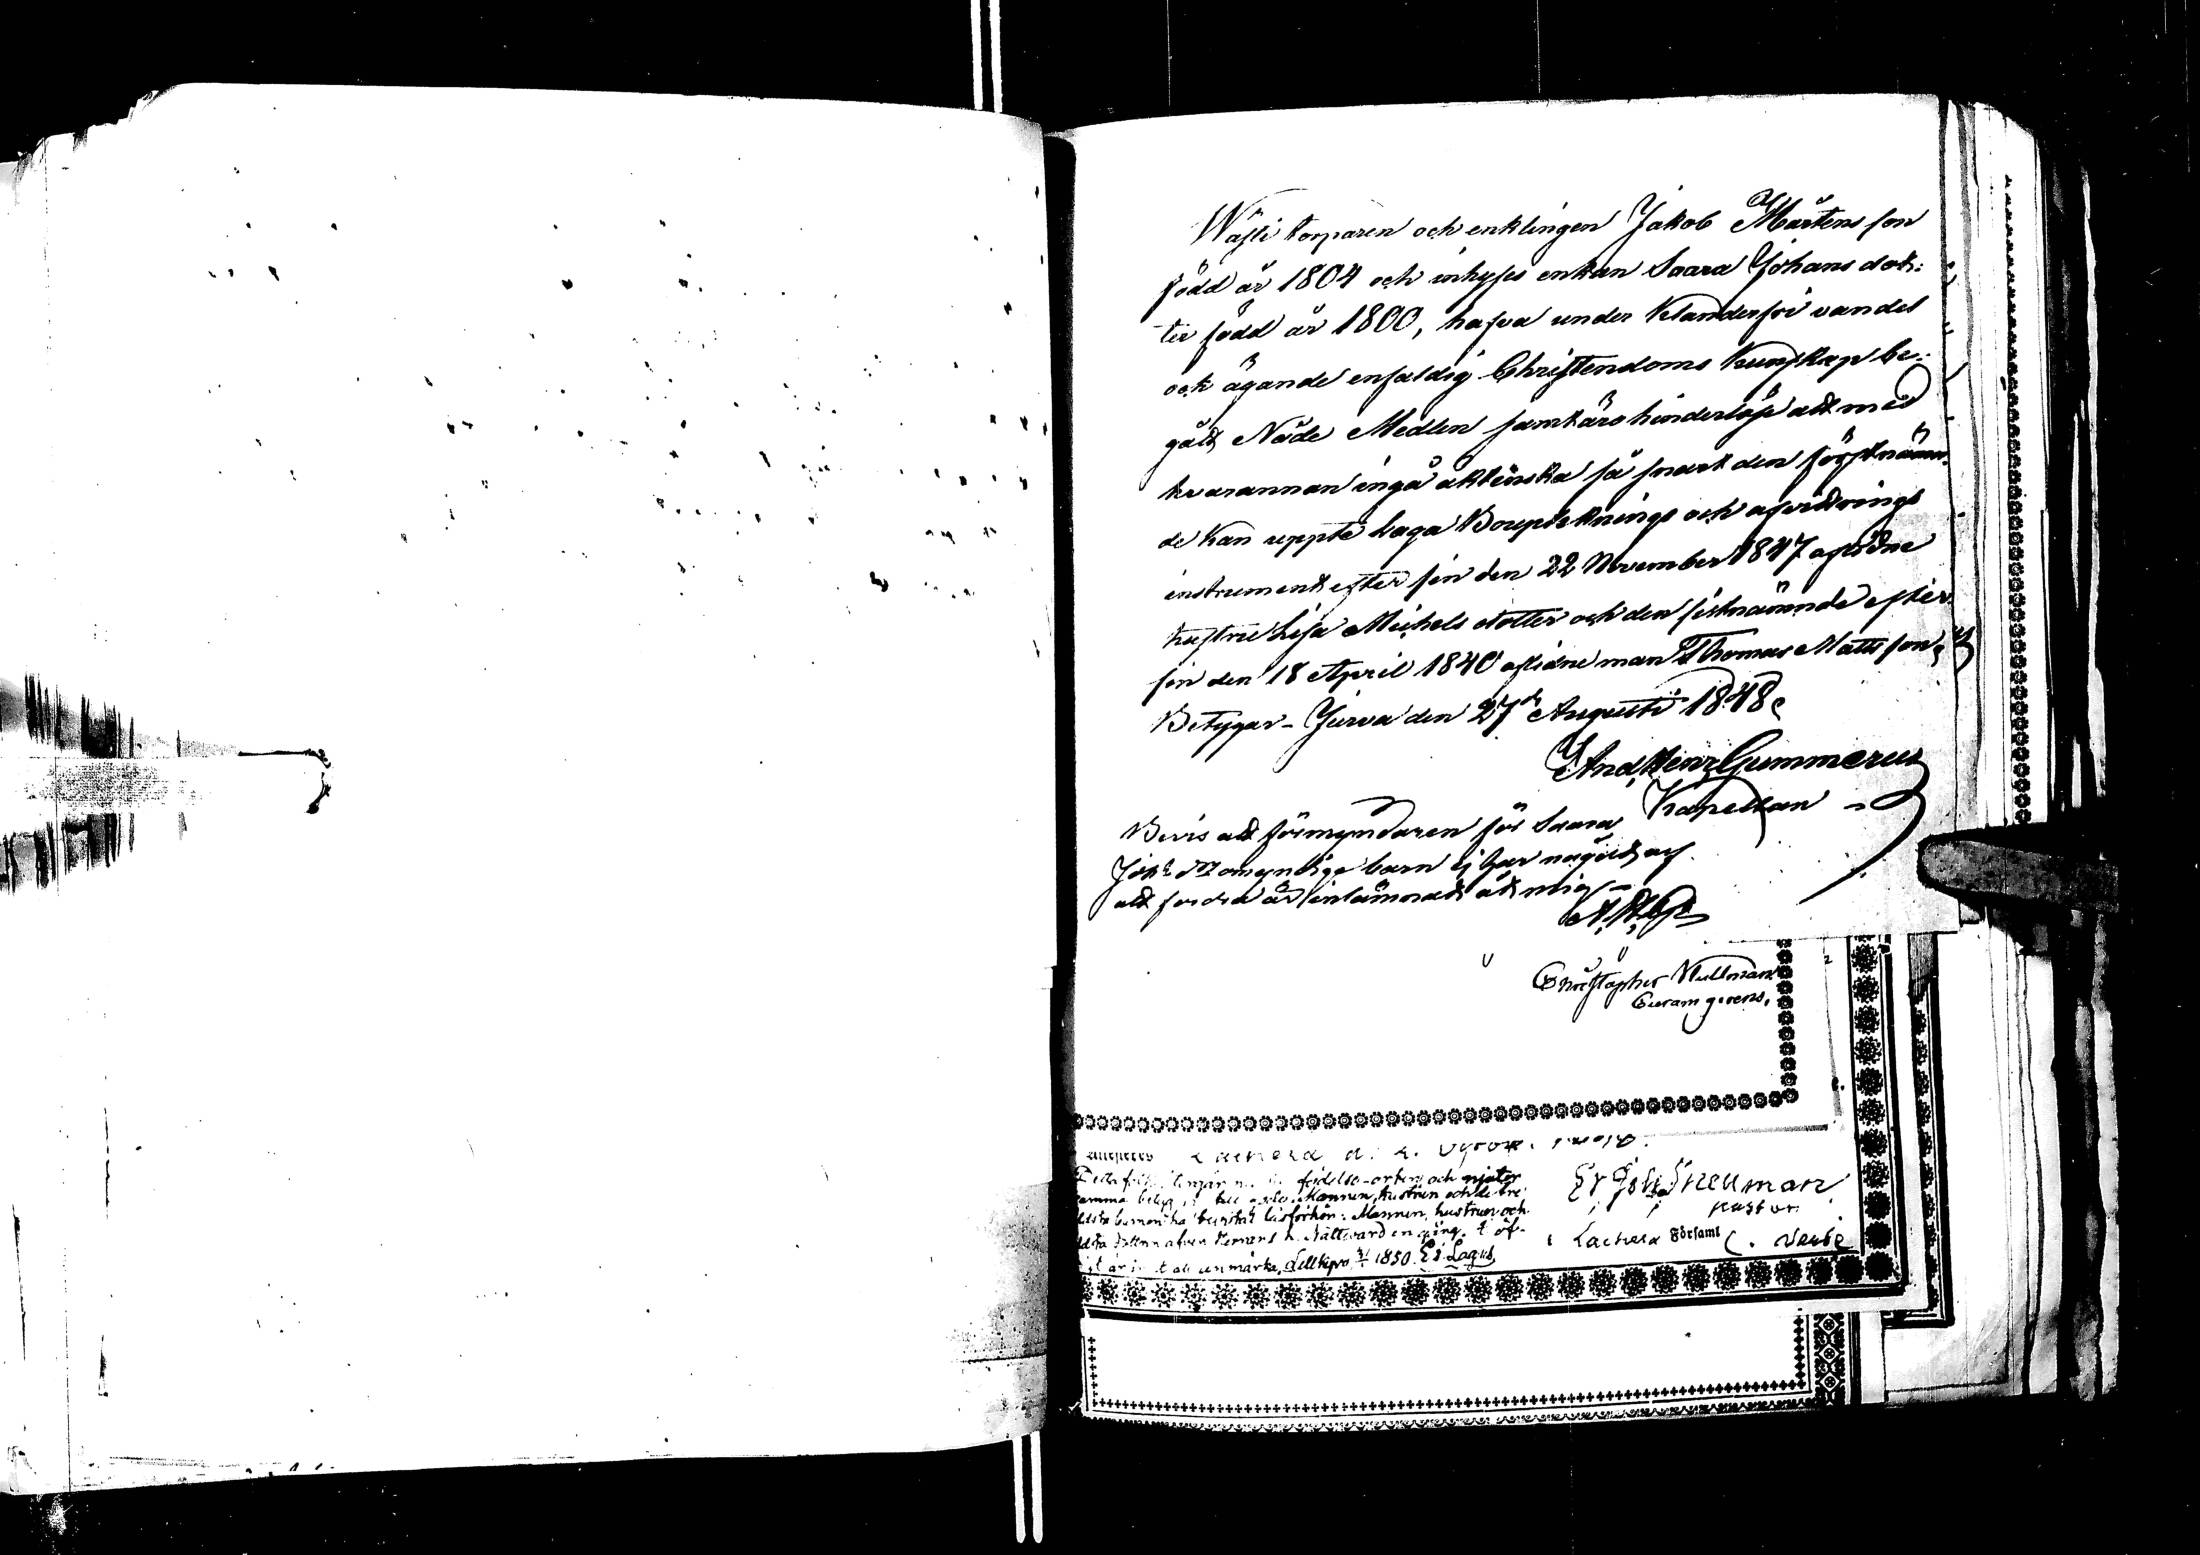 Wästi torparen och enklingen Jakob Mårtens son
född år 1804 och inhyses enkan Saara Johans dot:
ter född år 1800, hafva under klanderfri vandel
och ägande enfaldig Christendoms Kunskap be:
gått Nåde Medlen samt äro hinderlöse att med
hvarannan ingå äktenska så snart den förstnämn:
de kan uppte laga Bouptecknings och afvittrings
instrument efter sin den 22 November 1847 aflidne
hustru Lisa Michels dotter och den sistnämnde efter
sin den 18 April 1840 aflidne man Thomas Matts son,
Betygar - Jurva den 27de Augusti 1848,
And, Henr Gummerus
Kapellan
Bevis att förmyndaren för Saara
Joh: dr omyndige barn ej har något af
att fordra är inlämnadt åt mig -
A. H. G.
Christopher Wullman
Curam gerens.
Detta födelse-orten och njuter
Mannen, hustrun och de tre
Mannen, hustrun och
Nattvard en gång. I öf-
anmärka, Lillkyro 1850. Ej Lagus,
Joh Snellman
pastor
i Lachela Församl